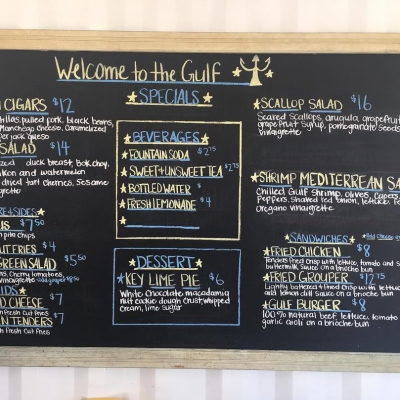 Welcome to the Gulf
SPECIALS
CIGARS $12
pulled pork, black beans,
Manchego cheese, caramelized
jack queso
SALAD $14
duck breast, bok choy,
and watermelon
dried tart cherries, sesame
$7.50
pita chips
$4
GREEN SALAD $5.50
cherry tomatoes,
vinaigrette
KIDS
CHEESE $7
Fresh Cut Fries
TENDERS $7
Fresh Cut Fries
BEVERAGES
FOUNTAIN SODA $2.75
SWEET & UNSWEET TEA $2.75
BOTTLED WATER $
FRESH LEMONADE $4
DESSERT
KEY LIME PIE $6
White Chocolate macadamia
nut cookie dough crust, whipped
cream, lime sugar
SCALLOP SALAD $16
Seared Scallops, arugula, grapefruit
grapefruit syrup, pomegranate seeds
Vinaigrette
SHRIMP MEDITERREAN SA
Chilled Gulf Shrimp, olives, capers,
Peppers, shaved red onion, lettuce, Fe
Oregano Vinaigrette
SANDWICHES
FRIED CHICKEN $8
fried crisp with lettuce, tomato and s
buttermilk sauce on a brioche bun
FRIED GROUPER $17.75
Lightly battered & fried crisp with lettuce
and lemon dill sauce on a brioche bun
GULF BURGER $8
100% natural beef, lettuce, tomato
garlic aioli on a brioche bun